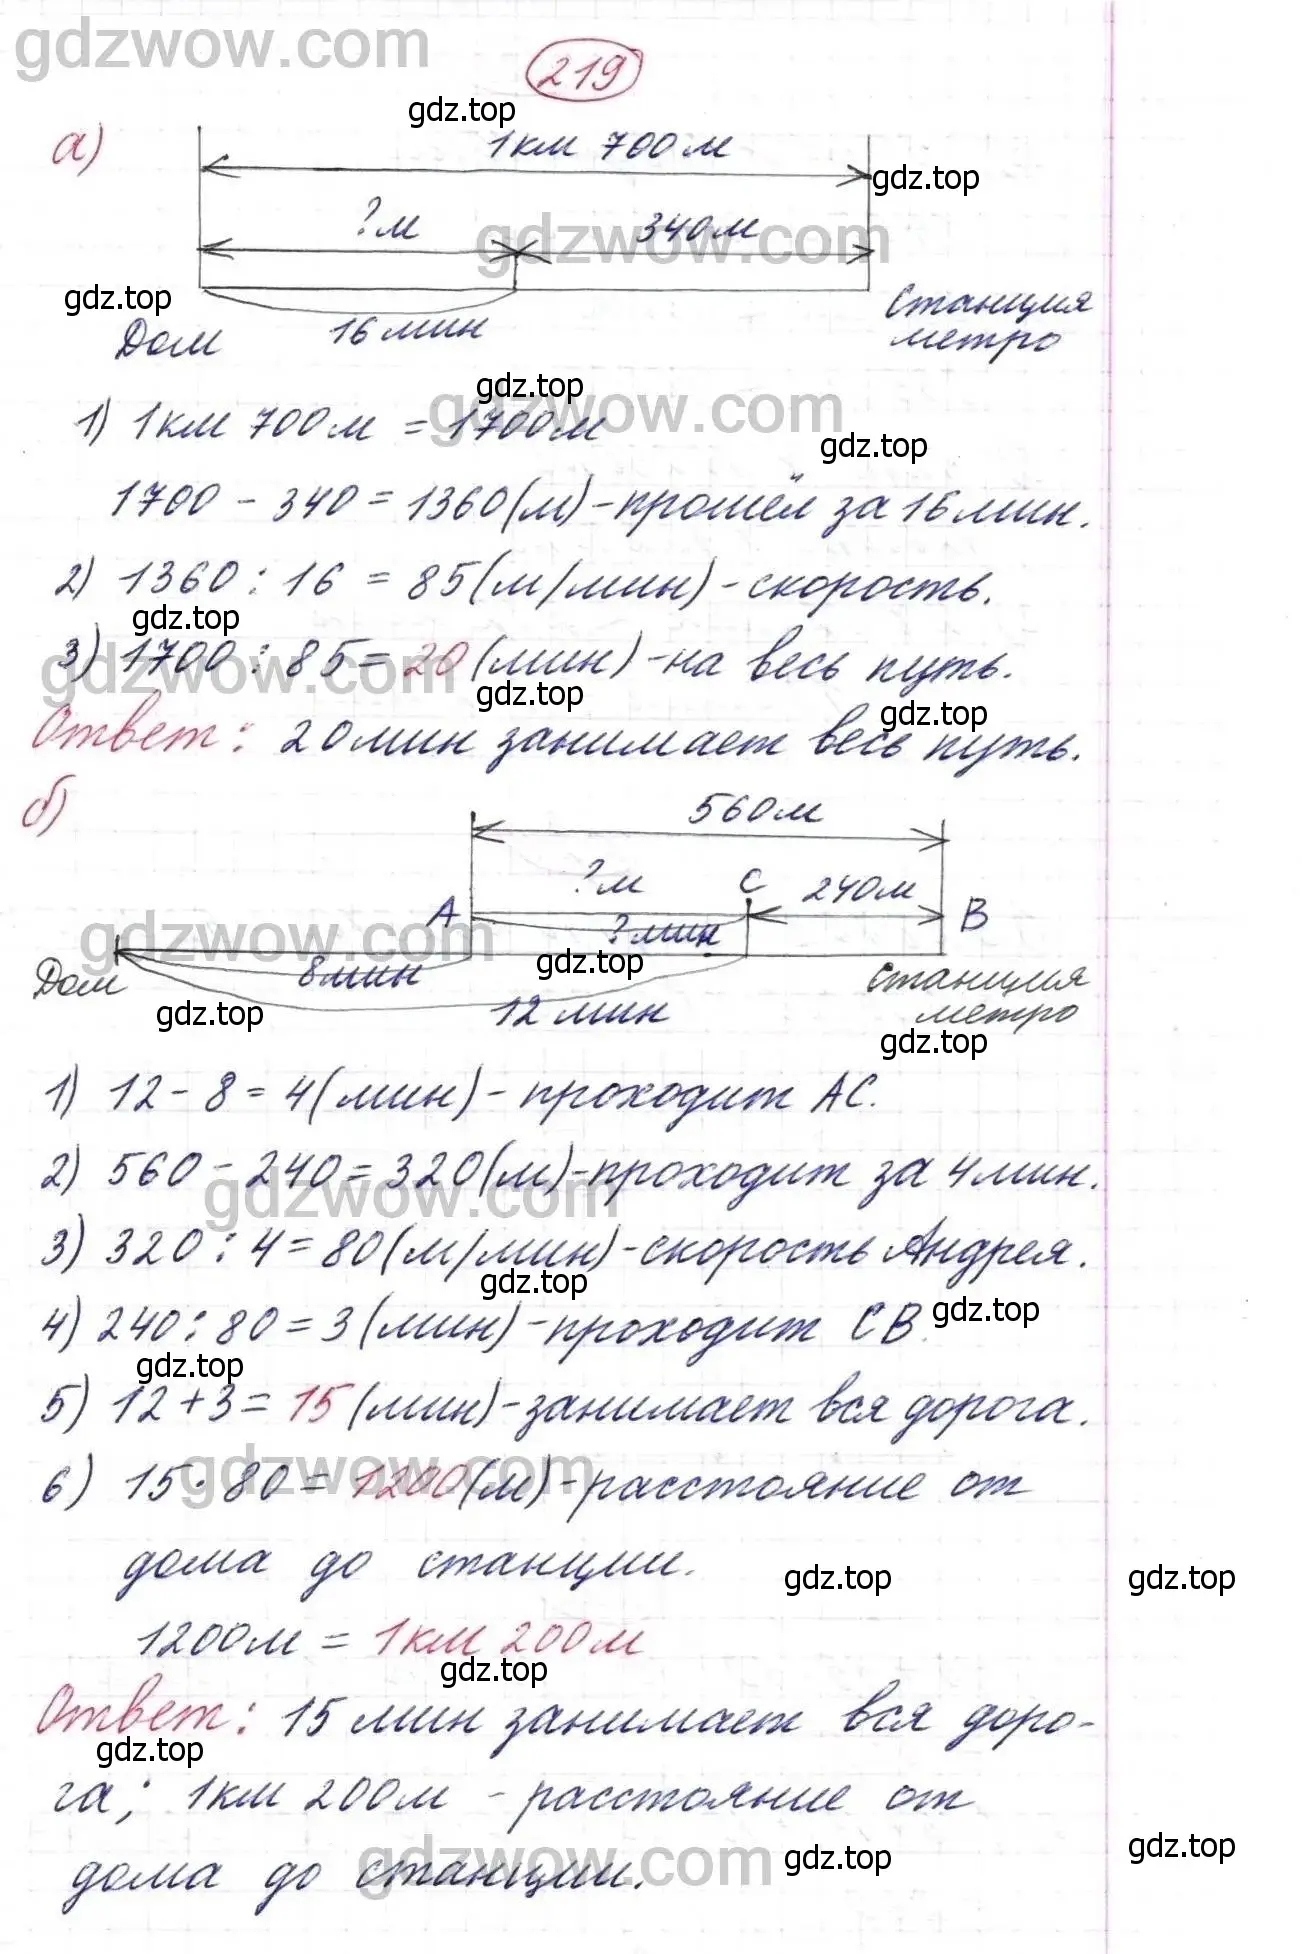 gdzwow.com
219
gdz.top
а)
1км 700м
gdz.top
?м
340м
gdzwow.com
gdz.top
16мин
Дом
Станция
метро
gdz.top
gdzwow.com
1) 1км 700м = 1700м
gdz.top
1700 - 340 = 1360(м)-прошёл за 16мин.
2) 1360 : 16 = 85(м/мин)-скорость.
gdz.top
3) 1700 : 85 = 20 (мин)-на весь путь.
gdzwow.com
gdz.top
gdz.top
Ответ: 20мин занимает весь путь.
б)
560м
?м
С
240м
А
В
gdzwow.com
?мин
8мин
gdz.top
Дом
Станция
метро
gdz.top
12 мин
gdz.top
1) 12 - 8 = 4(мин)-проходит АС.
2) 560 - 240 = 320(м)-проходит за 4мин.
gdzwow.com
3) 320 : 4 = 80(м/мин)-скорость Андрея.
gdz.top
gdz.top
4) 240 : 80 = 3 (мин)-проходит СВ.
gdz.top
5) 12 + 3 = 15 (мин)-занимает вся дорога.
gdzwow.com
6) 15 · 80 = 1200(м)-расстояние от
дома до станции.
gdz.top
gdz.top
1200м = 1км 200м
gdz.top
Ответ: 15 мин занимает вся доро-
gdz.top
га; 1км 200м - расстояние от
gdz.top
gdzwow.com
gdz.top
дома до станции.